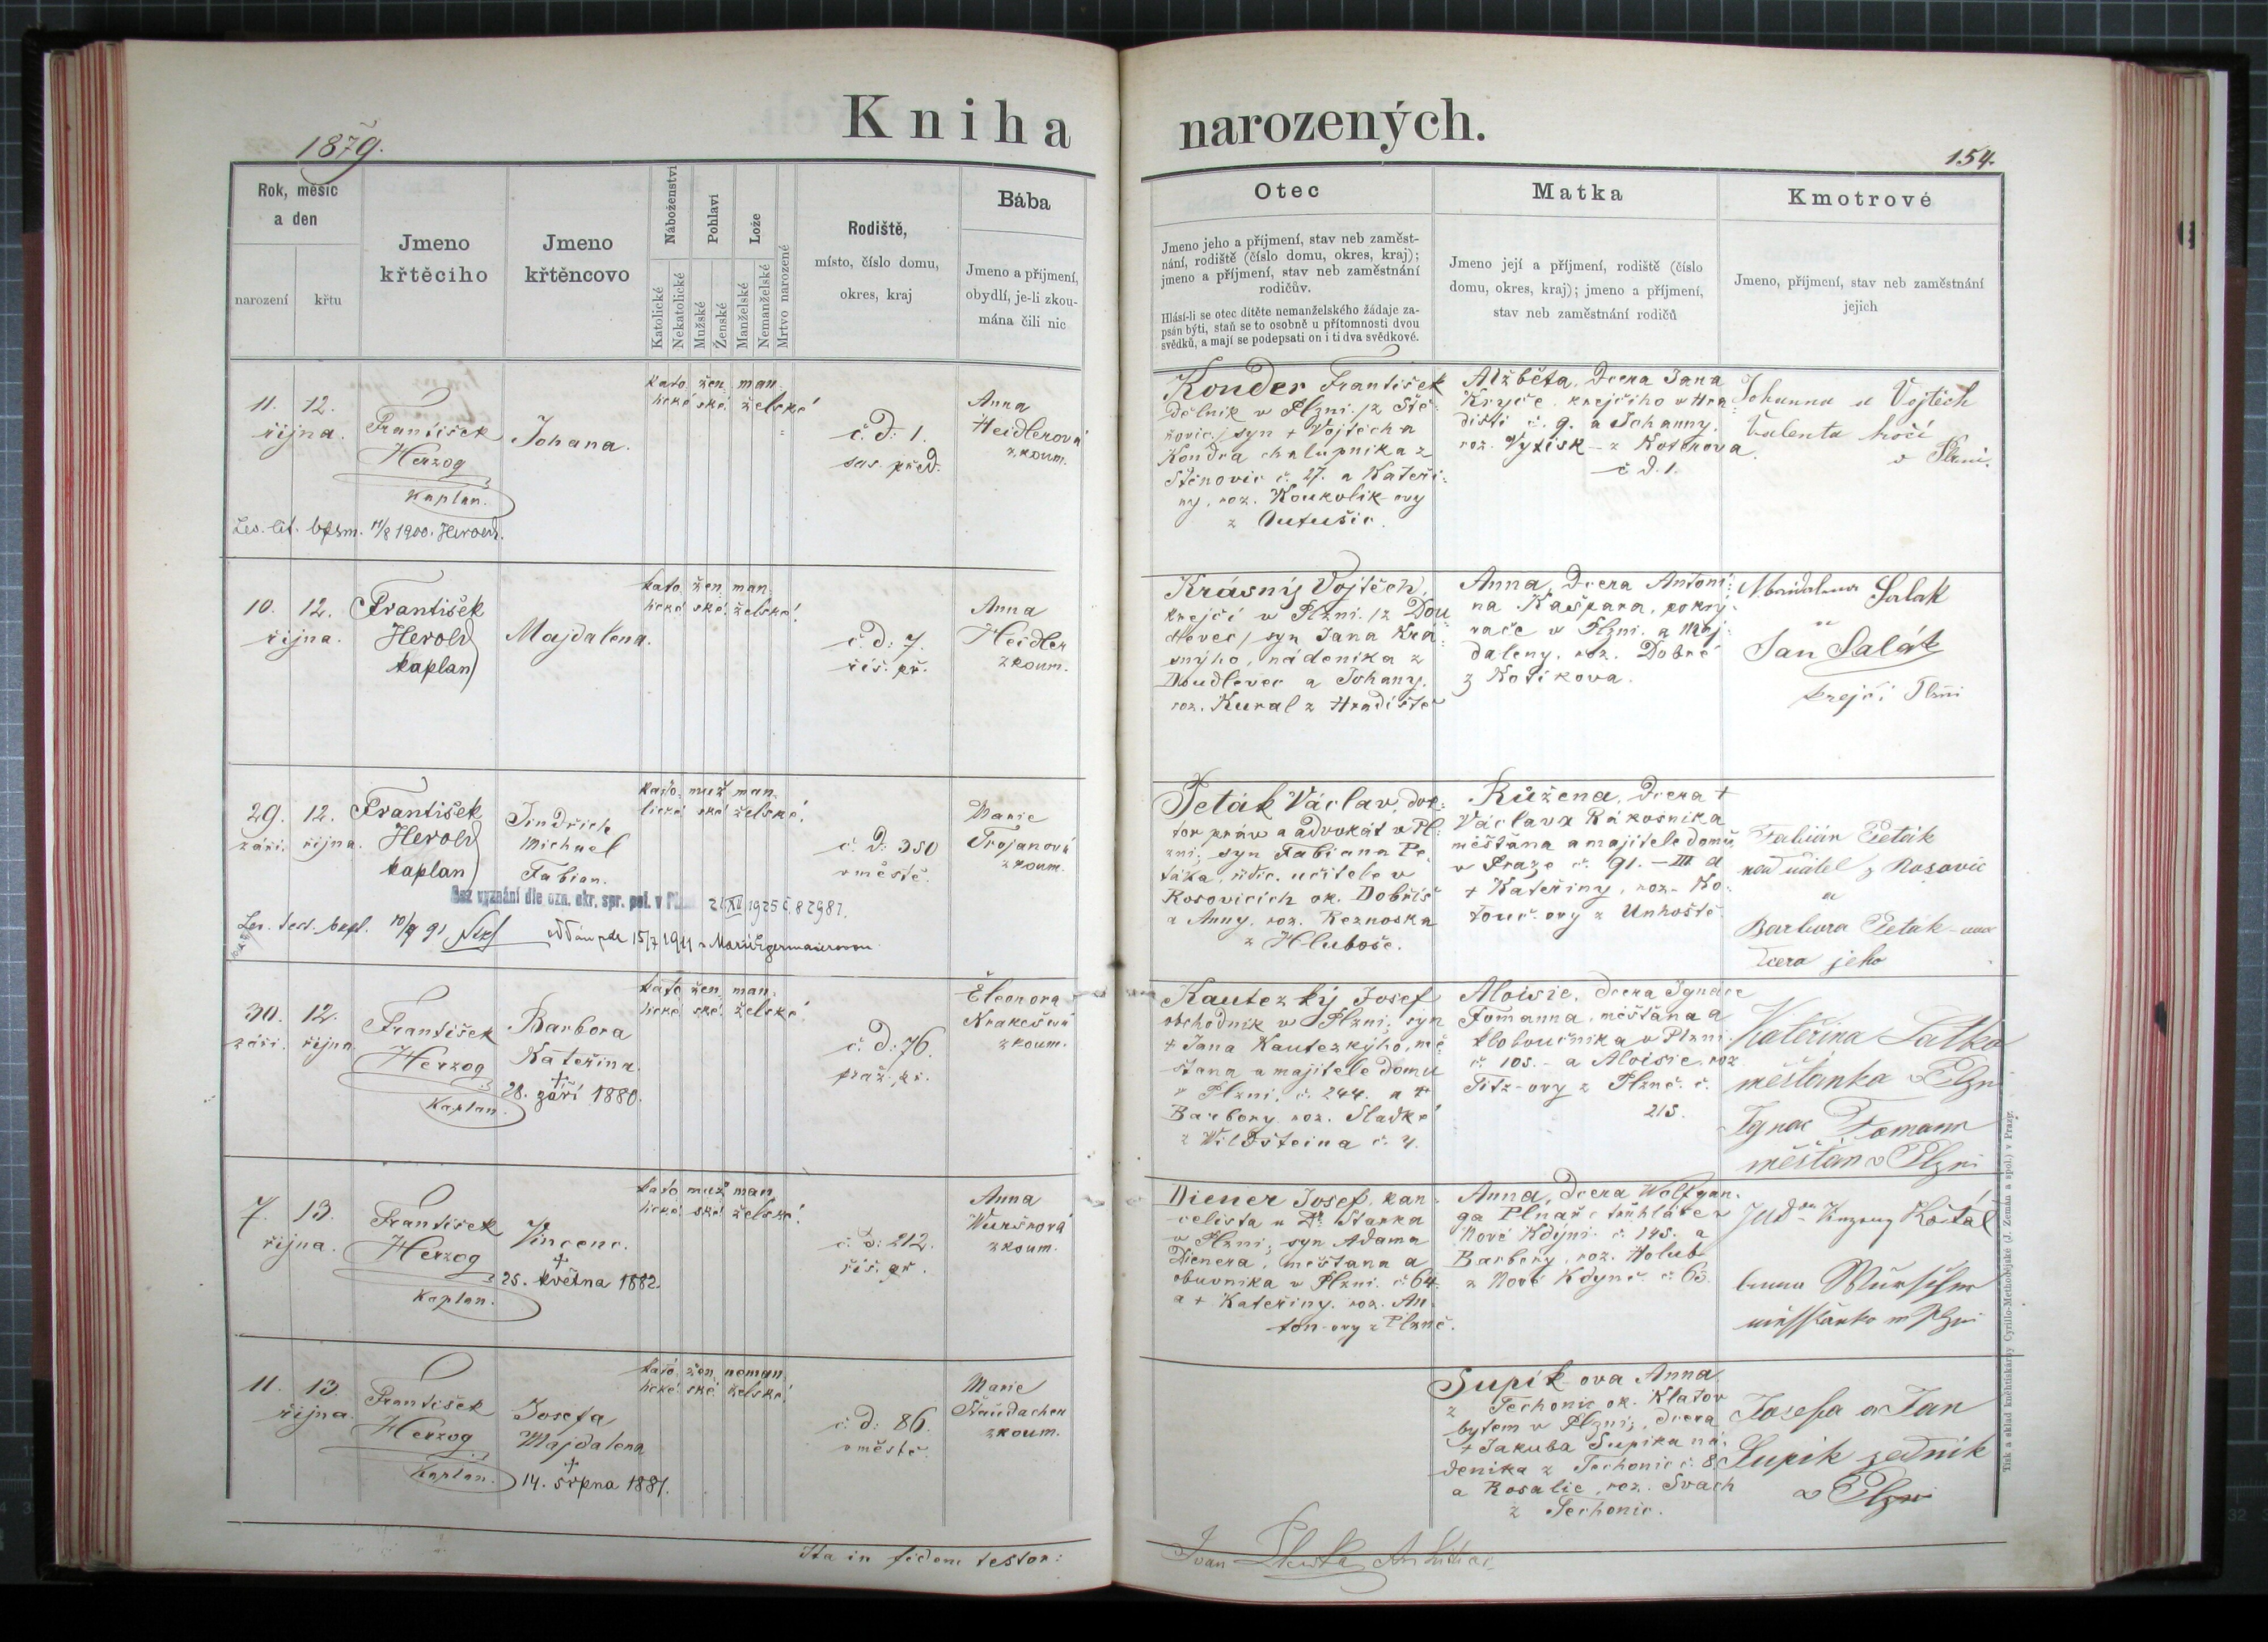 Kniha narozených.
1879.
154.
Rok, měsíc
a den
narození
křtu
Jmeno
křtěcího
Jmeno
křtěncovo
Náboženství
Katolické
Nekatolické
Pohlaví
Mužské
Ženské
Lože
Manželské
Nemanželské
Mrtvo narozené
Rodiště,
místo, číslo domu,
okres, kraj
Bába
Jmeno a příjmení,
obydlí, je-li zkou-
mána čili nic
Otec
Jmeno jeho a příjmení, stav neb zaměst-
nání, rodiště (číslo domu, okres, kraj);
jmeno a příjmení, stav neb zaměstnání
rodičův.
Hlásí-li se otec dítěte nemanželského žádaje za-
psán býti, staň se to osobně u přítomnosti dvou
svědků, a mají se podepsati on i ti dva svědkové.
Matka
Jmeno její a příjmení, rodiště (číslo
domu, okres, kraj); jmeno a příjmení,
stav neb zaměstnání rodičů
Kmotrové
Jmeno, příjmení, stav neb zaměstnání
jejich
11. 12.
října.
František
Herzog
Kaplan.
Johana.
kato. žen. man.
lické ské želské
č. d: 1.
sas. před.
Anna
Heidlerová
zkoum.
11/8 1900. Herold.
Konder František
dělník v Plzni /z Ště-
novic./ syn + Vojtěcha
Kondra chalupníka z
Štěnovic č. 27. a Kateři-
ny, roz. Koukolík-ovy
z Nutušic.
Alžběta, dcera Jana
Kryče krejčího v Hra-
dišti č. 9. a Johanny.
roz. Vytisk - z Koterova
č d. 1.
Johanna a Vojtěch
Valenta
v Plzni.
10. 12.
října.
František
Herold
kaplan
Majdalena.
kato. žen. man.
lické ské želské.
č. d: 7.
řís. př.
Anna
Heidler
zkoum.
Krásný Vojtěch,
krejčí v Plzni. /z Dou-
dlevec/ syn Jana Krá-
snýho, nádeníka z
Doudlevec a Johany.
roz. Kural z Hradiště
Anna, dcera Antoní-
na Kašpara, pokrý-
vače v Plzni. a Maj-
daleny. roz. Dobré
z Kotíkova.
Salák
a
Jan Salák
krejčí Plzni
29. 12.
září. října.
František
Herold
kaplan
Jindřich
Michael
Fabian.
kato. muž man.
lické ské želské.
č. d: 350
v městě.
Marie
Trojanová
zkoum.
Bez vyznání dle ozn. okr. spr. pol. v Plzni 1925 č. 82981.
15/7 1911
Peták Václav, dok-
tor práv a advokát v Pl-
zni, syn Fabiana Pe-
táka, řídíc. učitele v
Rosovicích ok. Dobříš
a Anny, roz. Reznoska
z Hluboše.
Růžena, dcera +
Václava Rákosníka
měšťana a majitele domu
v Praze č. 91. - III a
+ Kateřiny, roz. Ko-
touč-ovy z Unhoště.
Fabián Peták
nad učitel z Rosovic
a
Barbora Peták-ova
dcera jeho
30. 12.
září. října
František
Herzog
Kaplan.
Barbora
Kateřina.
†
28. září 1880.
kato. žen. man.
lické ské želské.
č. d: 76.
praž. př.
Eleonora
Krakešová
zkoum.
Kautezký Josef
obchodník v Plzni, syn
+ Jana Kautezkýho, mě-
šťana a majitele domu
v Plzni. č. 244. a +
Barbory roz. Sladké
z Wildšteina č. 4.
Aloisie, dcera Ignáce
Fomanna, měšťana a
kloboučníka v Plzni.
č. 105. - a Aloisie, roz
Titz-ovy z Plzně. č.
215.
Kateřina Latka
měšťanka v Plzni
Ignac Fomann
měšťan v Plzni
7. 13.
října.
František
Herzog
Kaplan.
Vincenc.
†
25. května 1882.
kato. muž man.
lické ské želské.
č. d: 212.
řís. př.
Anna
Wuršrová
zkoum.
Diener Josef, kan-
celista u Dr Starka
v Plzni, syn Adama
Dienera, měšťana a
obuvníka v Plzni. č. 64.
a + Kateřiny. roz. An-
ton-ovy z Plzně.
Anna, dcera Wolfgan-
ga Plnaře truhláře v
Nové Kdyni. č. 145. a
Barbory, roz. Holub
z Nové Kdyně. č. 63.
JUDr Košťál
11. 13.
října.
František
Herzog
Kaplan.
Josefa
Majdalena
†
14. srpna 1881.
kato. žen. neman.
lické ské želské.
č. d: 86.
v městě.
Marie
Staudacher
zkoum.
Supík-ova Anna
z Techonic ok. Klatov
bytem v Plzni, dcera
+ Jakuba Supíka ná-
deníka z Techonic č. 8
a Rosalie, roz. Svach
z Techonic.
Josefa a Jan
Supík zedník
v Plzni
Ita in fidem testor:
Tisk a sklad knihtiskárny Cyrillo-Methodějské (J. Zeman a spol.) v Praze.